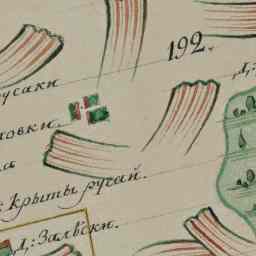 192.
усаки
ловки.
ка
крыты ручай.
Д: Залѣски.